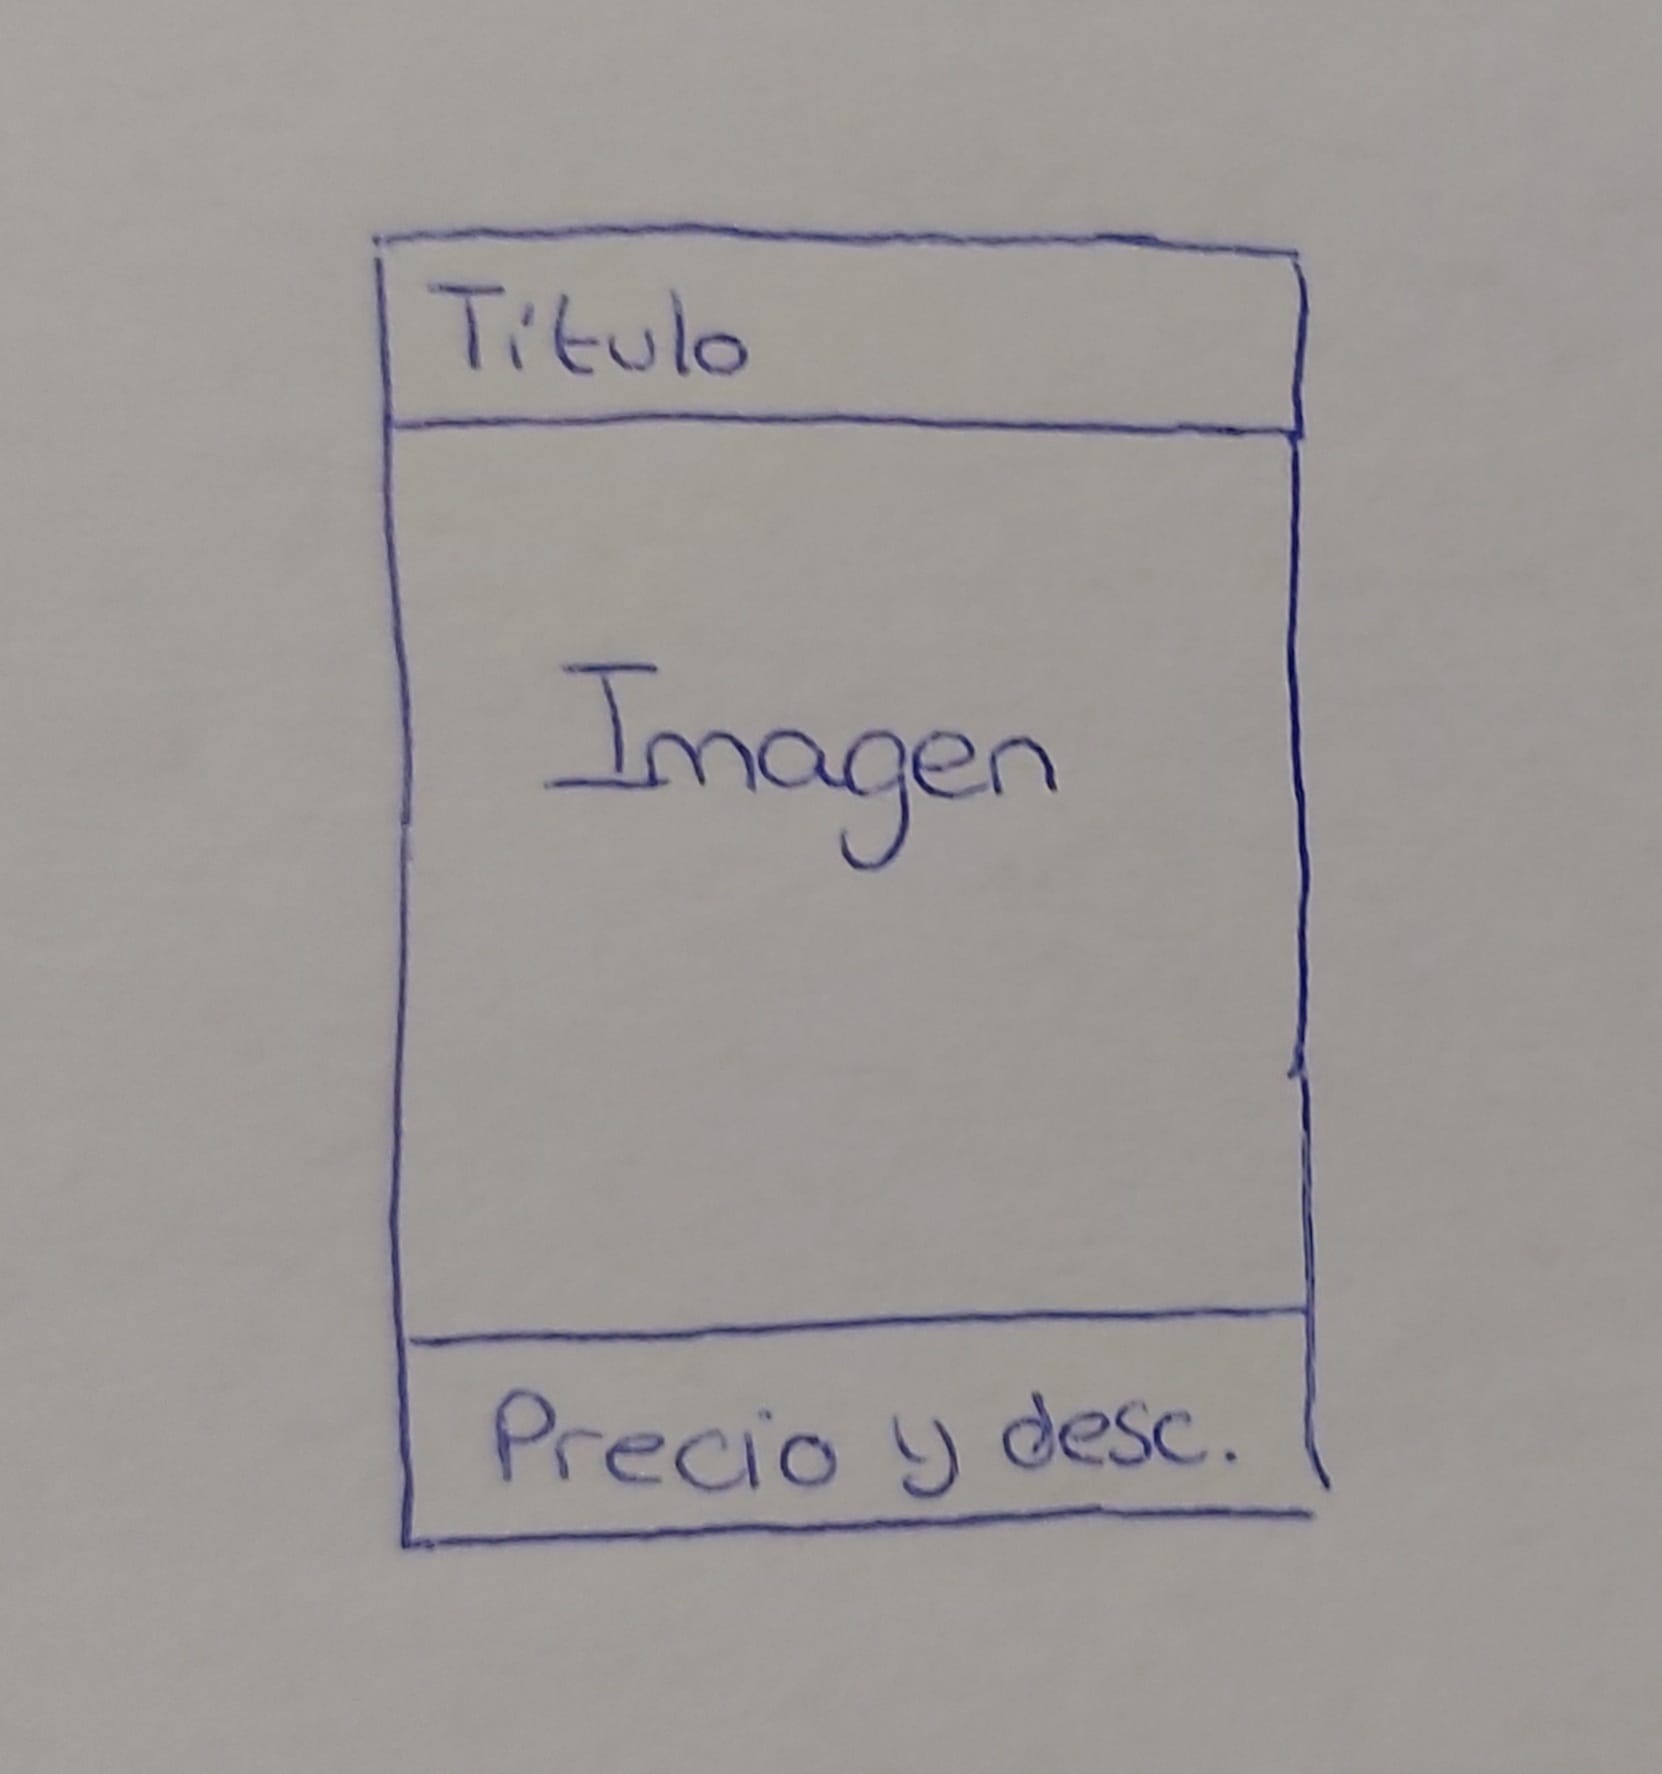 Título
Imagen
Precio y desc.